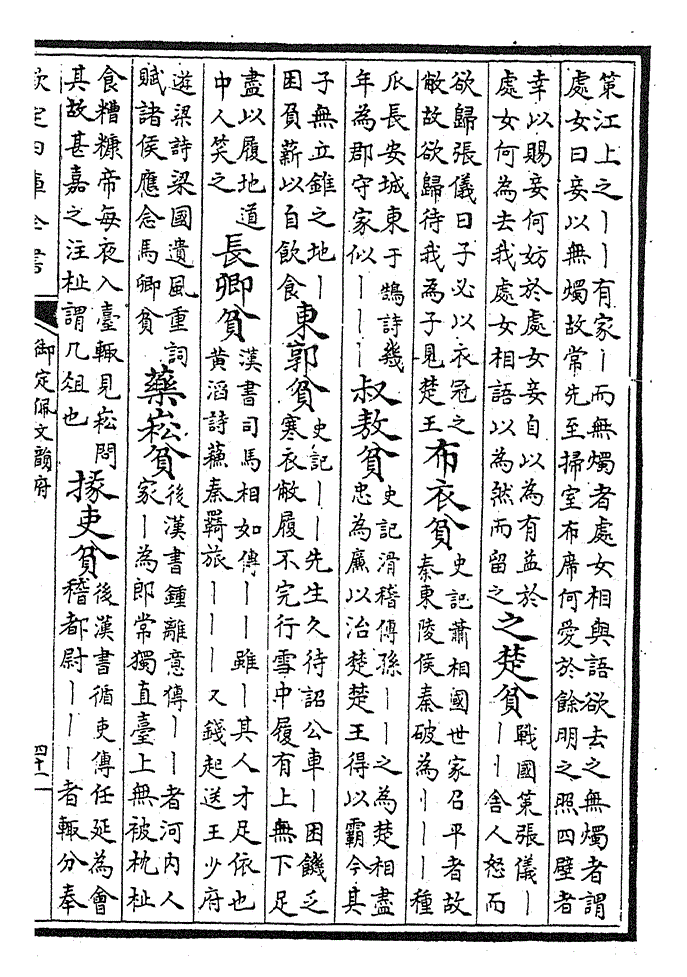 策江上之丨丨有家丨而無燭者處女相與語欲去之無燭者謂
處女曰妾以無燭故常先至掃室布席何愛於餘明之照四壁者
幸以賜妾何妨於處女妾自以為有益於
處女何為去我處女相語以為然而留之
之楚貧
戰國策張儀丨
丨丨舍人怒而
欲歸張儀曰子必以衣冠之
敝故欲歸待我為子見楚王
布衣貧
史記蕭相國世家召平者故
秦東陵侯秦破為丨丨丨種
瓜長安城東于鵠詩幾
年為郡守家似丨丨丨
叔敖貧
史記滑稽傳孫丨丨之為楚相盡
忠為廉以治楚楚王得以霸今其
子無立錐之地丨
困負薪以自飲食
東郭貧
史記丨丨先生久待詔公車丨困饑乏
寒衣敝履不完行雪中履有上無下足
盡以履地道
中人笑之
長卿貧
漢書司馬相如傳丨丨雖丨其人才足依也
黃滔詩蘓秦羇旅丨丨丨又錢起送王少府
遊梁詩梁國遺風重詞
賦諸侯應念馬卿貧
藥崧貧
後漢書鍾離意傳丨丨者河內人
家丨為郎常獨直臺上無被枕杫
食糟糠帝每夜入臺輙見崧問
其故甚嘉之注杫謂几俎也
掾吏貧
後漢書循吏傳任延為會
稽都尉丨丨丨者輙分奉
欽定四庫全書
御定佩文韻府